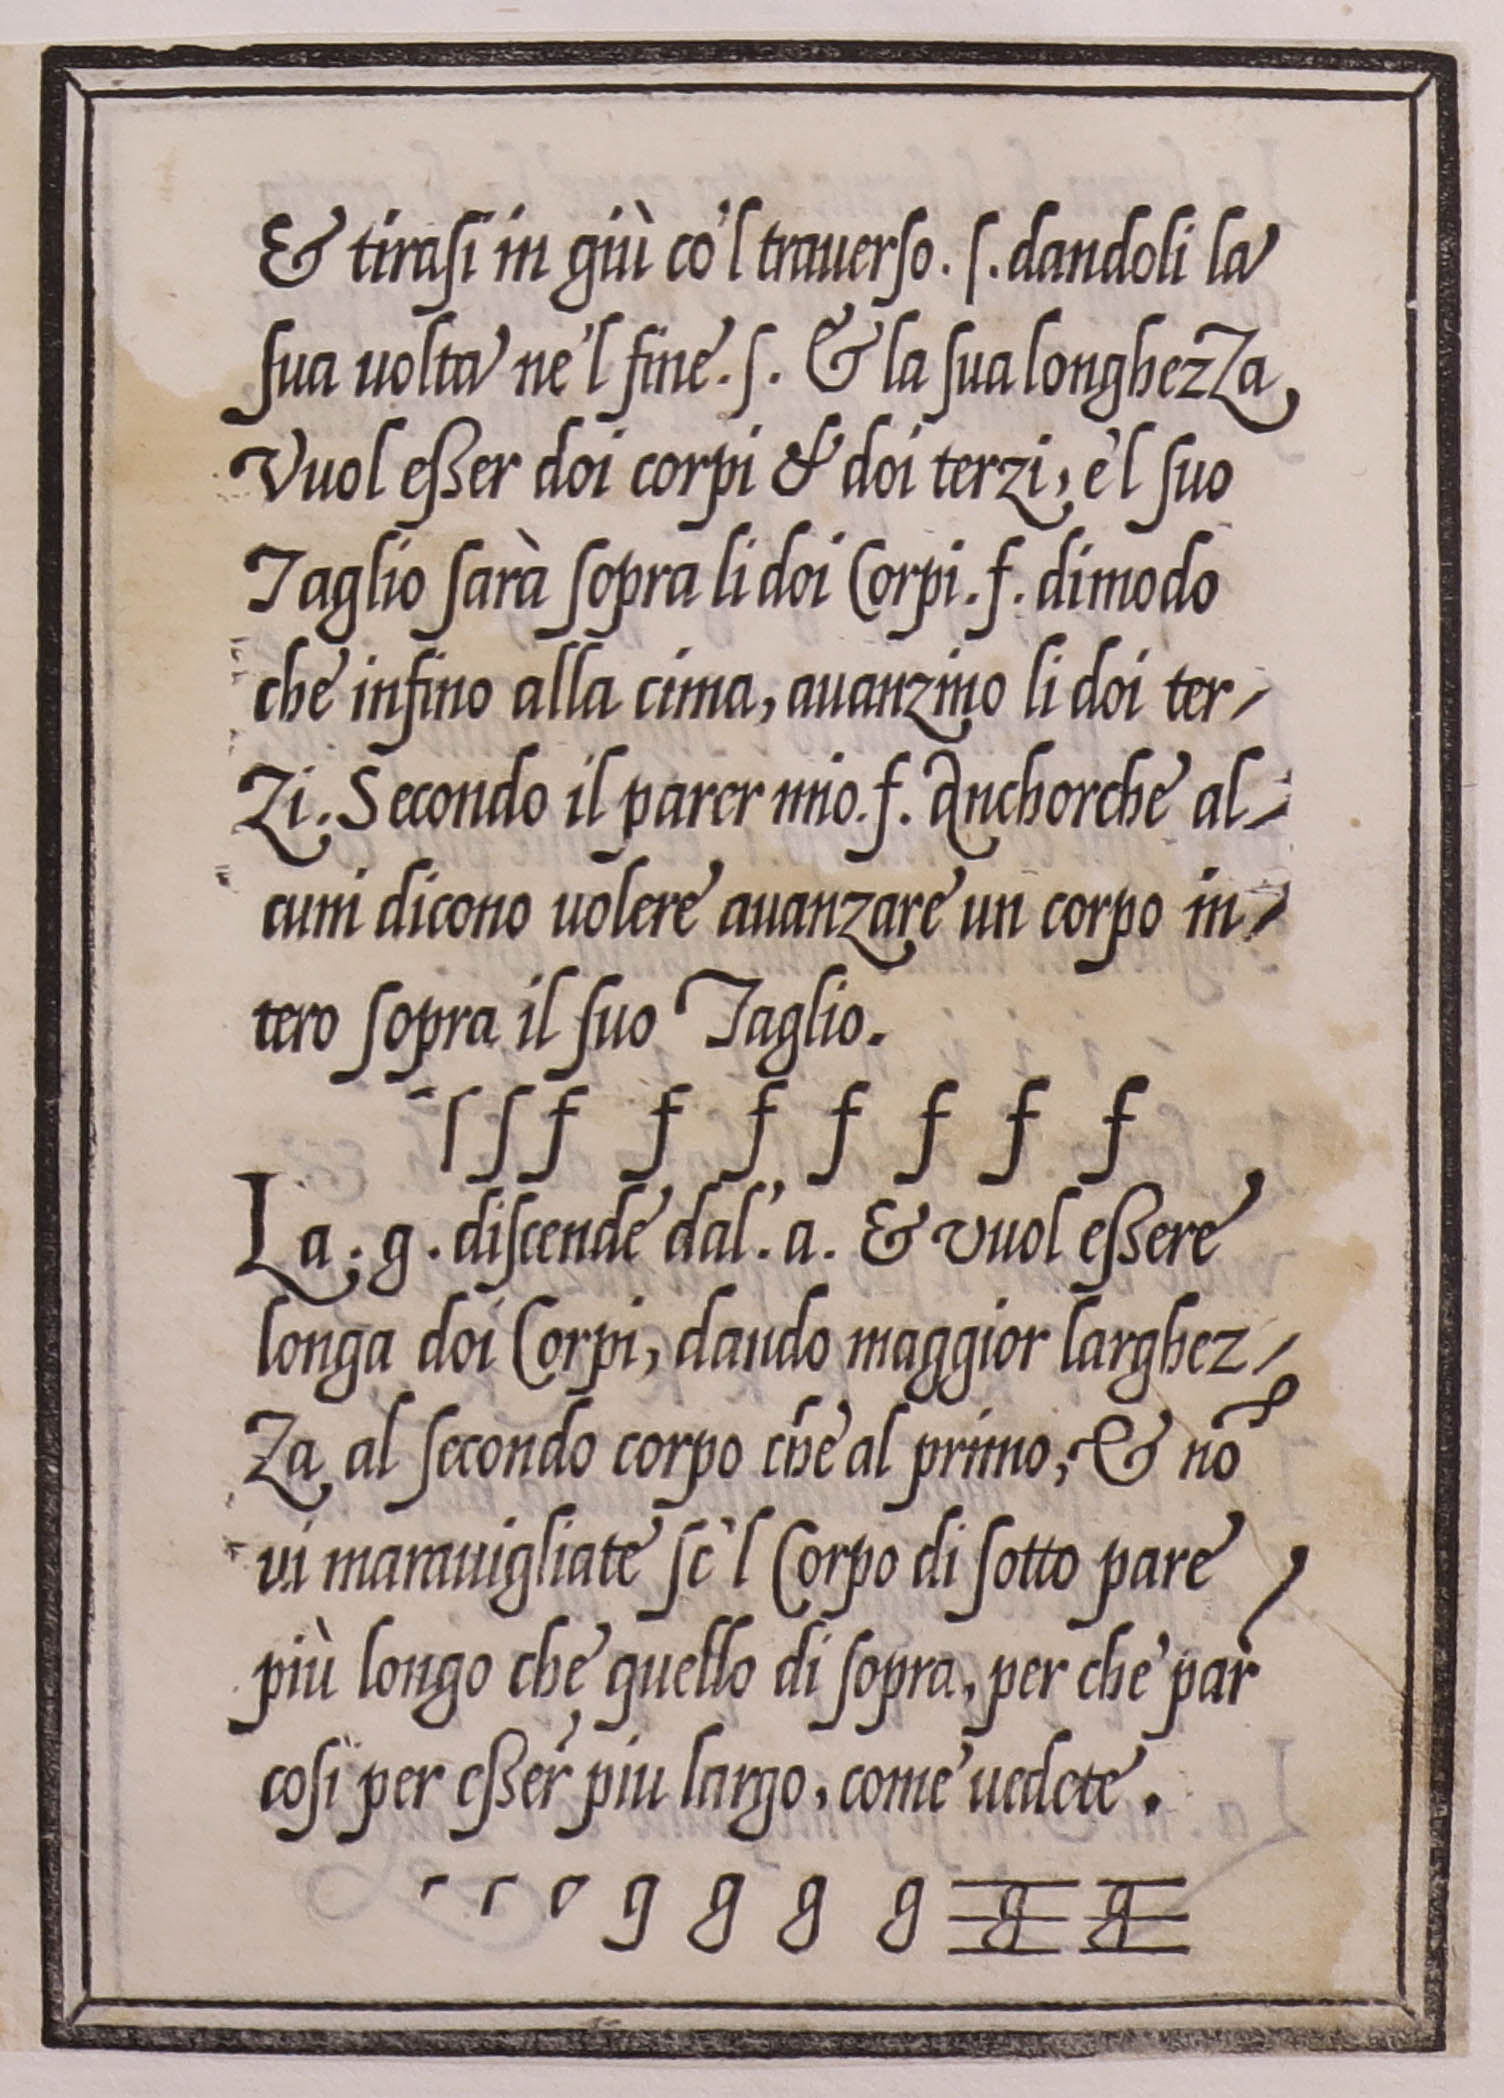 & tiraſi in giù co'l trauerſo. ſ. dandoli la
ſua uolta ne'l fine. ſ. & la ſua longhezza,
Vuol eßer doi corpi & doi terzi, e'l ſuo
Taglio ſarà ſopra li doi Corpi. f. dimodo
che infino alla cima, auanzino li doi ter/
Zi. Secondo il parer mio. f. Anchorche al/
cuni dicono uolere auanzare un corpo in/
tero ſopra il ſuo Taglio.
ſ ſ f f f f f f f
La. g. diſcende dal'. a. & vuol eßere
longa doi Corpi, dando maggior larghez/
Za al ſecondo corpo che al primo, & nõ
vi marauigliate ſe'l Corpo di ſotto pare
più longo che quello di ſopra, per che par
coſi per eßer piu largo, come uedete.
g g g g g g